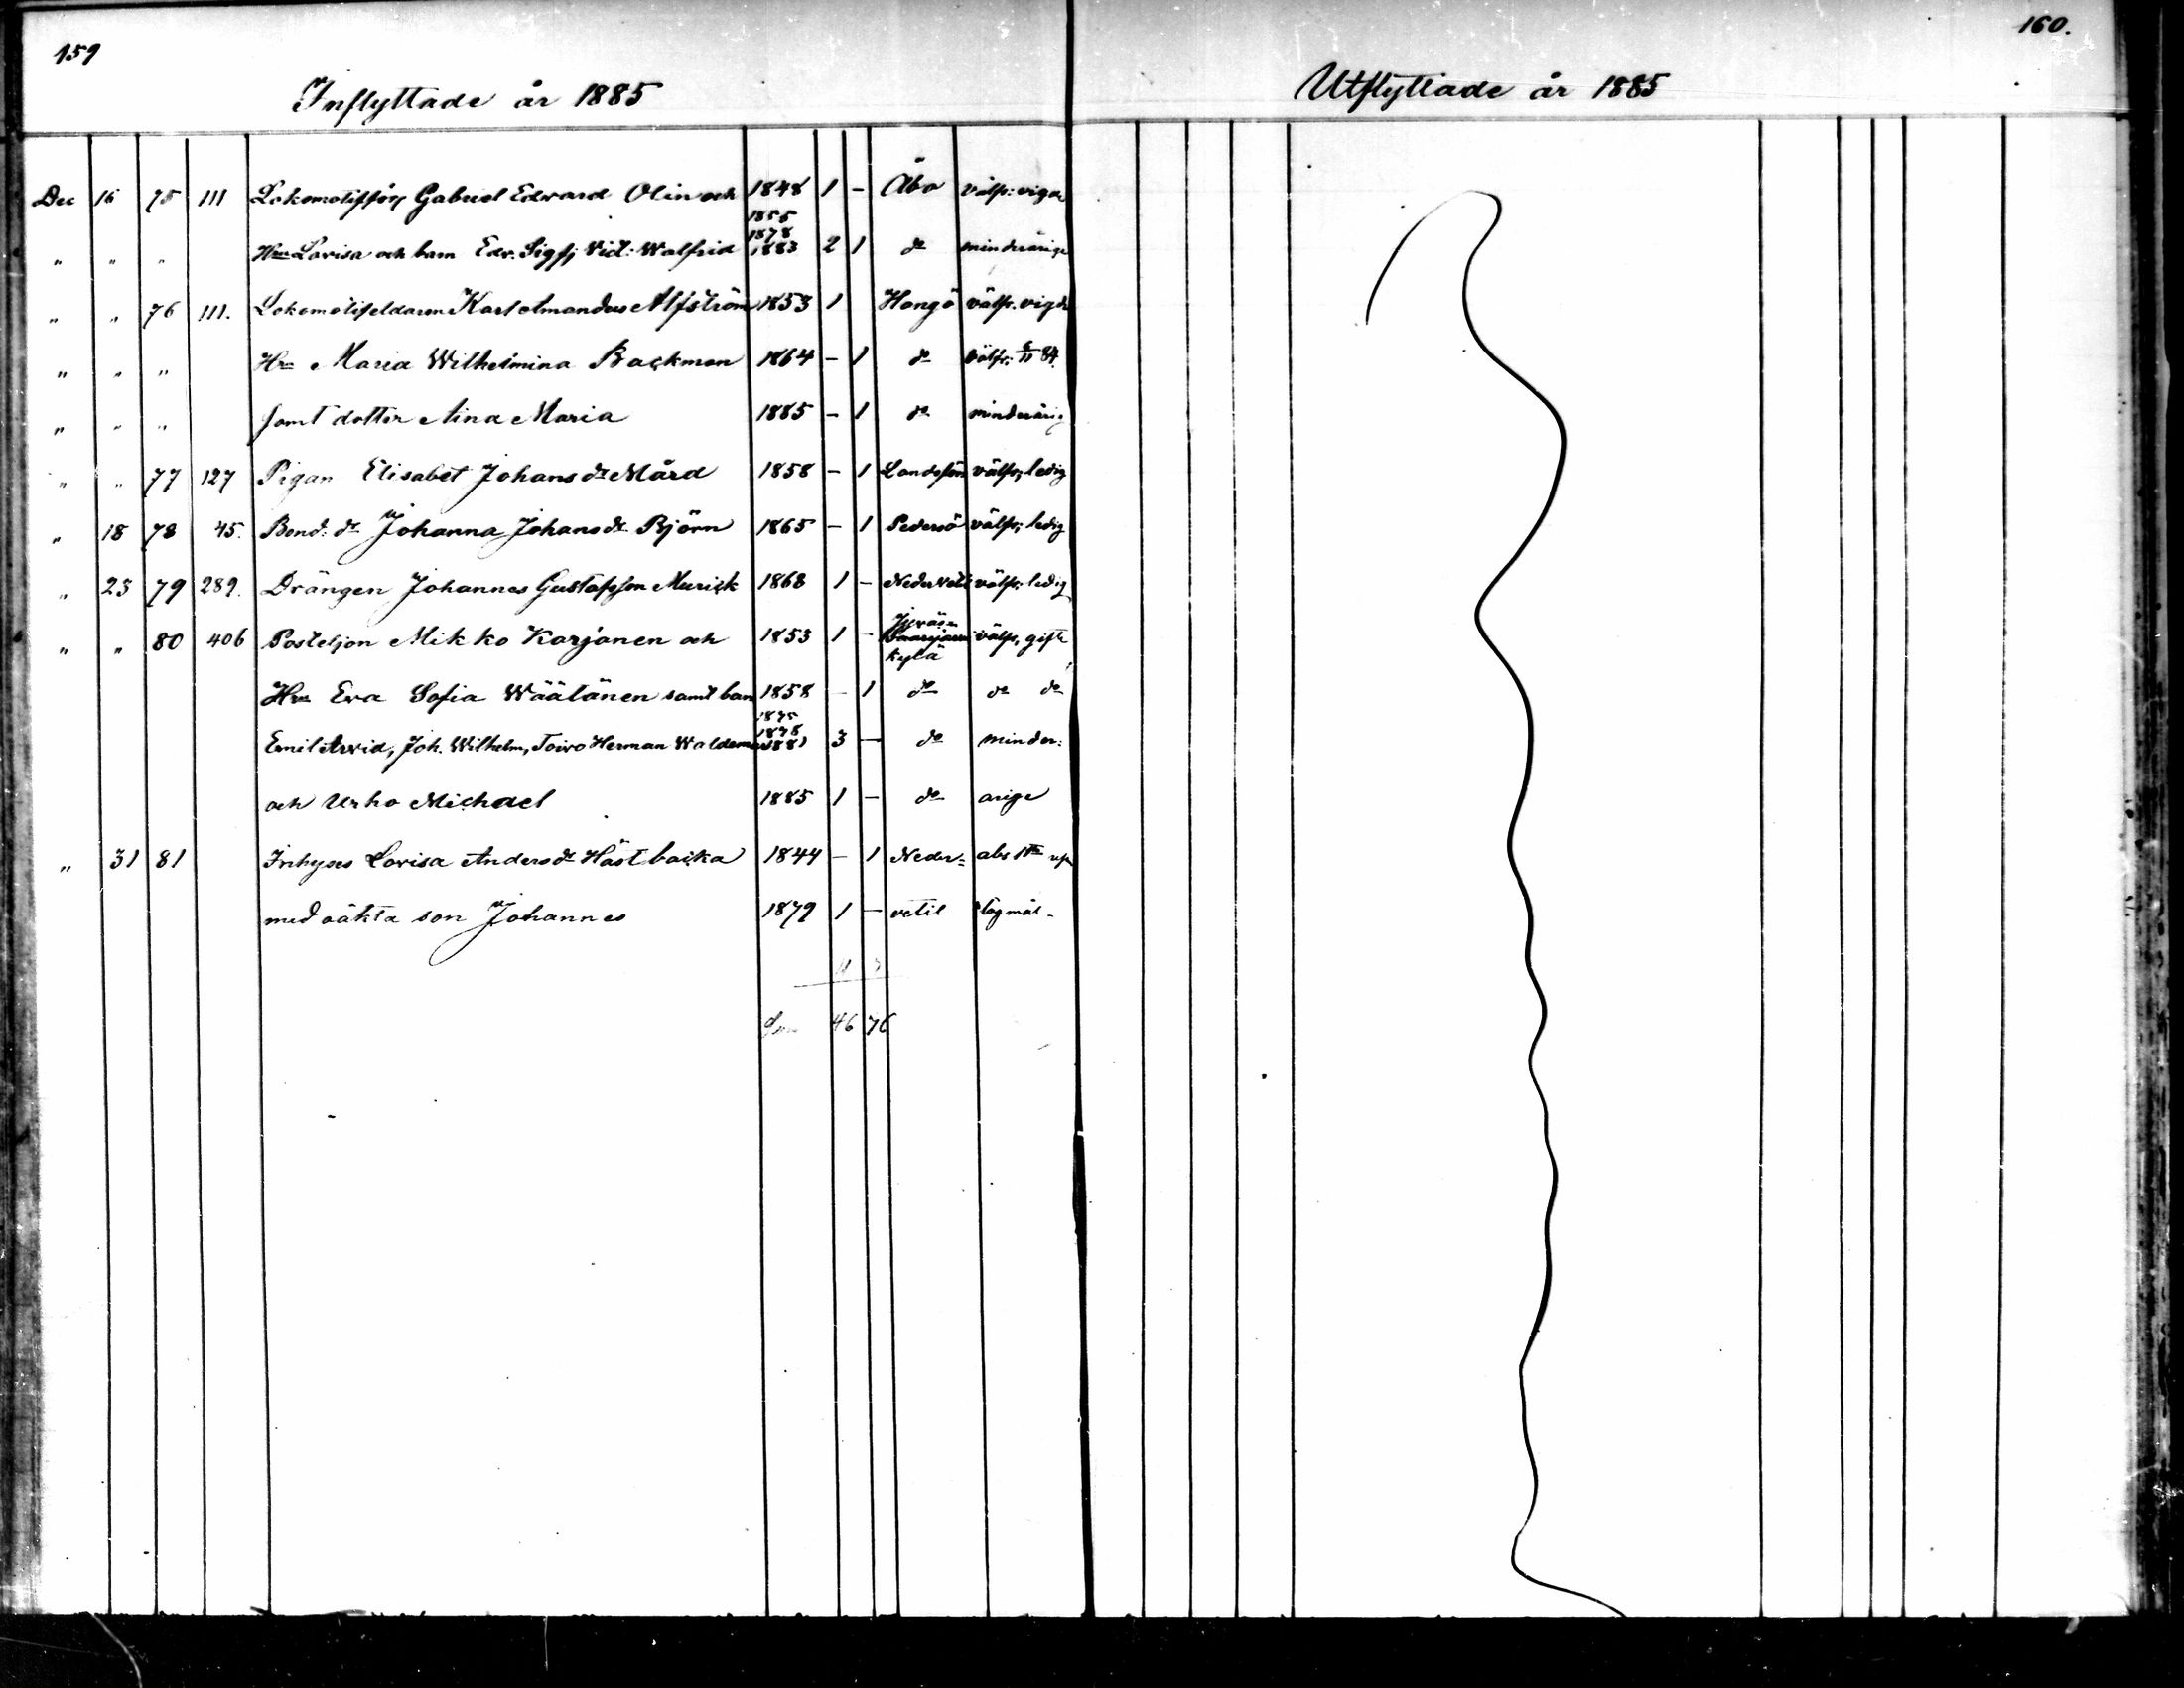 159
Inflyttade år 1885
Dec 16 75 111 Lokomotifför, Gabriel Edvard Olin och 1848 1 - Åbo välfr: vigde
1855
1878
" " " Hru Lovisa och barn Edv. Sigfr, Vid: Walfrid 1883 2 1 do minderårige
" " 76 111. Lokomotifeldaren Karl Amandus Alfström 1853 1 Hangö välfr. vigde
" " " Hru Maria Wilhelmina Backman 1864 - 1 do välfr: 84.
" " " samt dotter Aina Maria 1885 - 1 do minderårig
" " 77 127 Pigan Elisabet Johans dr Mård 1858 - 1 välfr, ledig
" 18 78 45. Bond: dr Johanna Johans dr Björn 1865 - 1 Pedersö välfr, ledig
" 23 79 289. Drängen Johannes Gustafsson Murick 1868 1 - Nedervetil välfr, ledig
" " 80 406 Posteljon Mikko Karjanen och 1853 1 - välfr, gifte
kylä
Hru Eva Sofia Wäätänen samt barn 1858 - 1 do do do
1875
1878
Emil Arvid, Joh. Wilhelm, Toivo Herman Waldemar 1881 3 - do minder:
och Urho Michael 1885 1 - do årige
" 31 81 Inhyses Lovisa Anders dr Hästbacka 1844 - 1 Neder-
med oäkta son Johannes 1879 1 - vetil
46 76
160.
Utflyttade år 1885